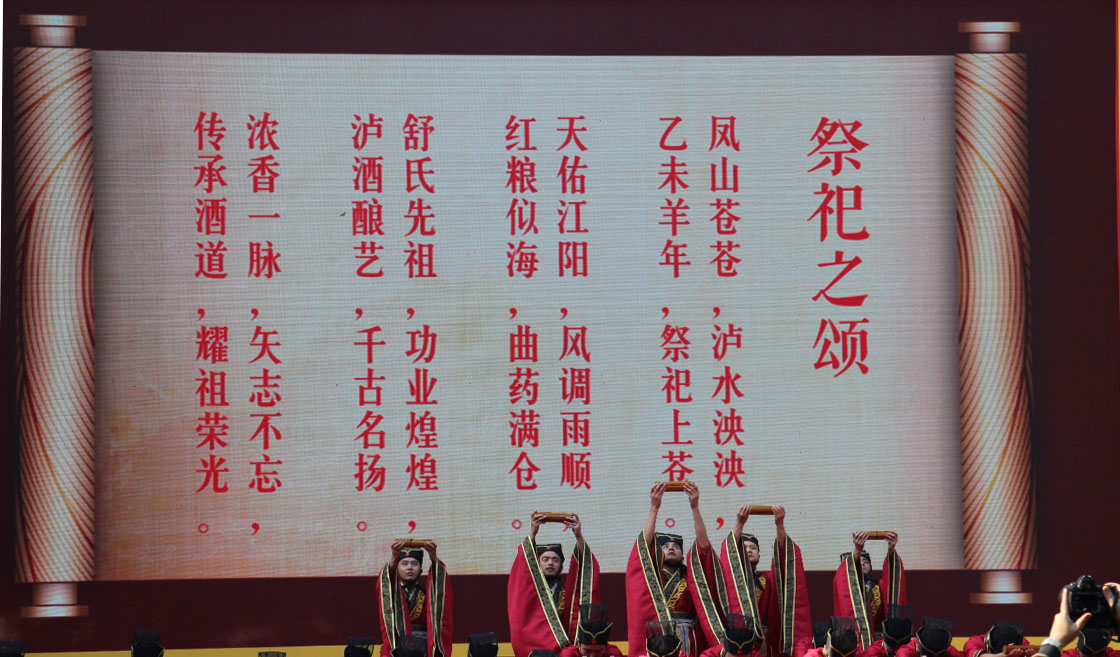 祭祀之颂
凤山苍苍，泸水泱泱，
乙未羊年，祭祀上苍。
天佑江阳，风调雨顺，
红粮似海，曲药满仓。
舒氏先祖，功业煌煌，
泸酒酿艺，千古名扬。
浓香一脉，矢志不忘，
传承酒道，耀祖荣光。